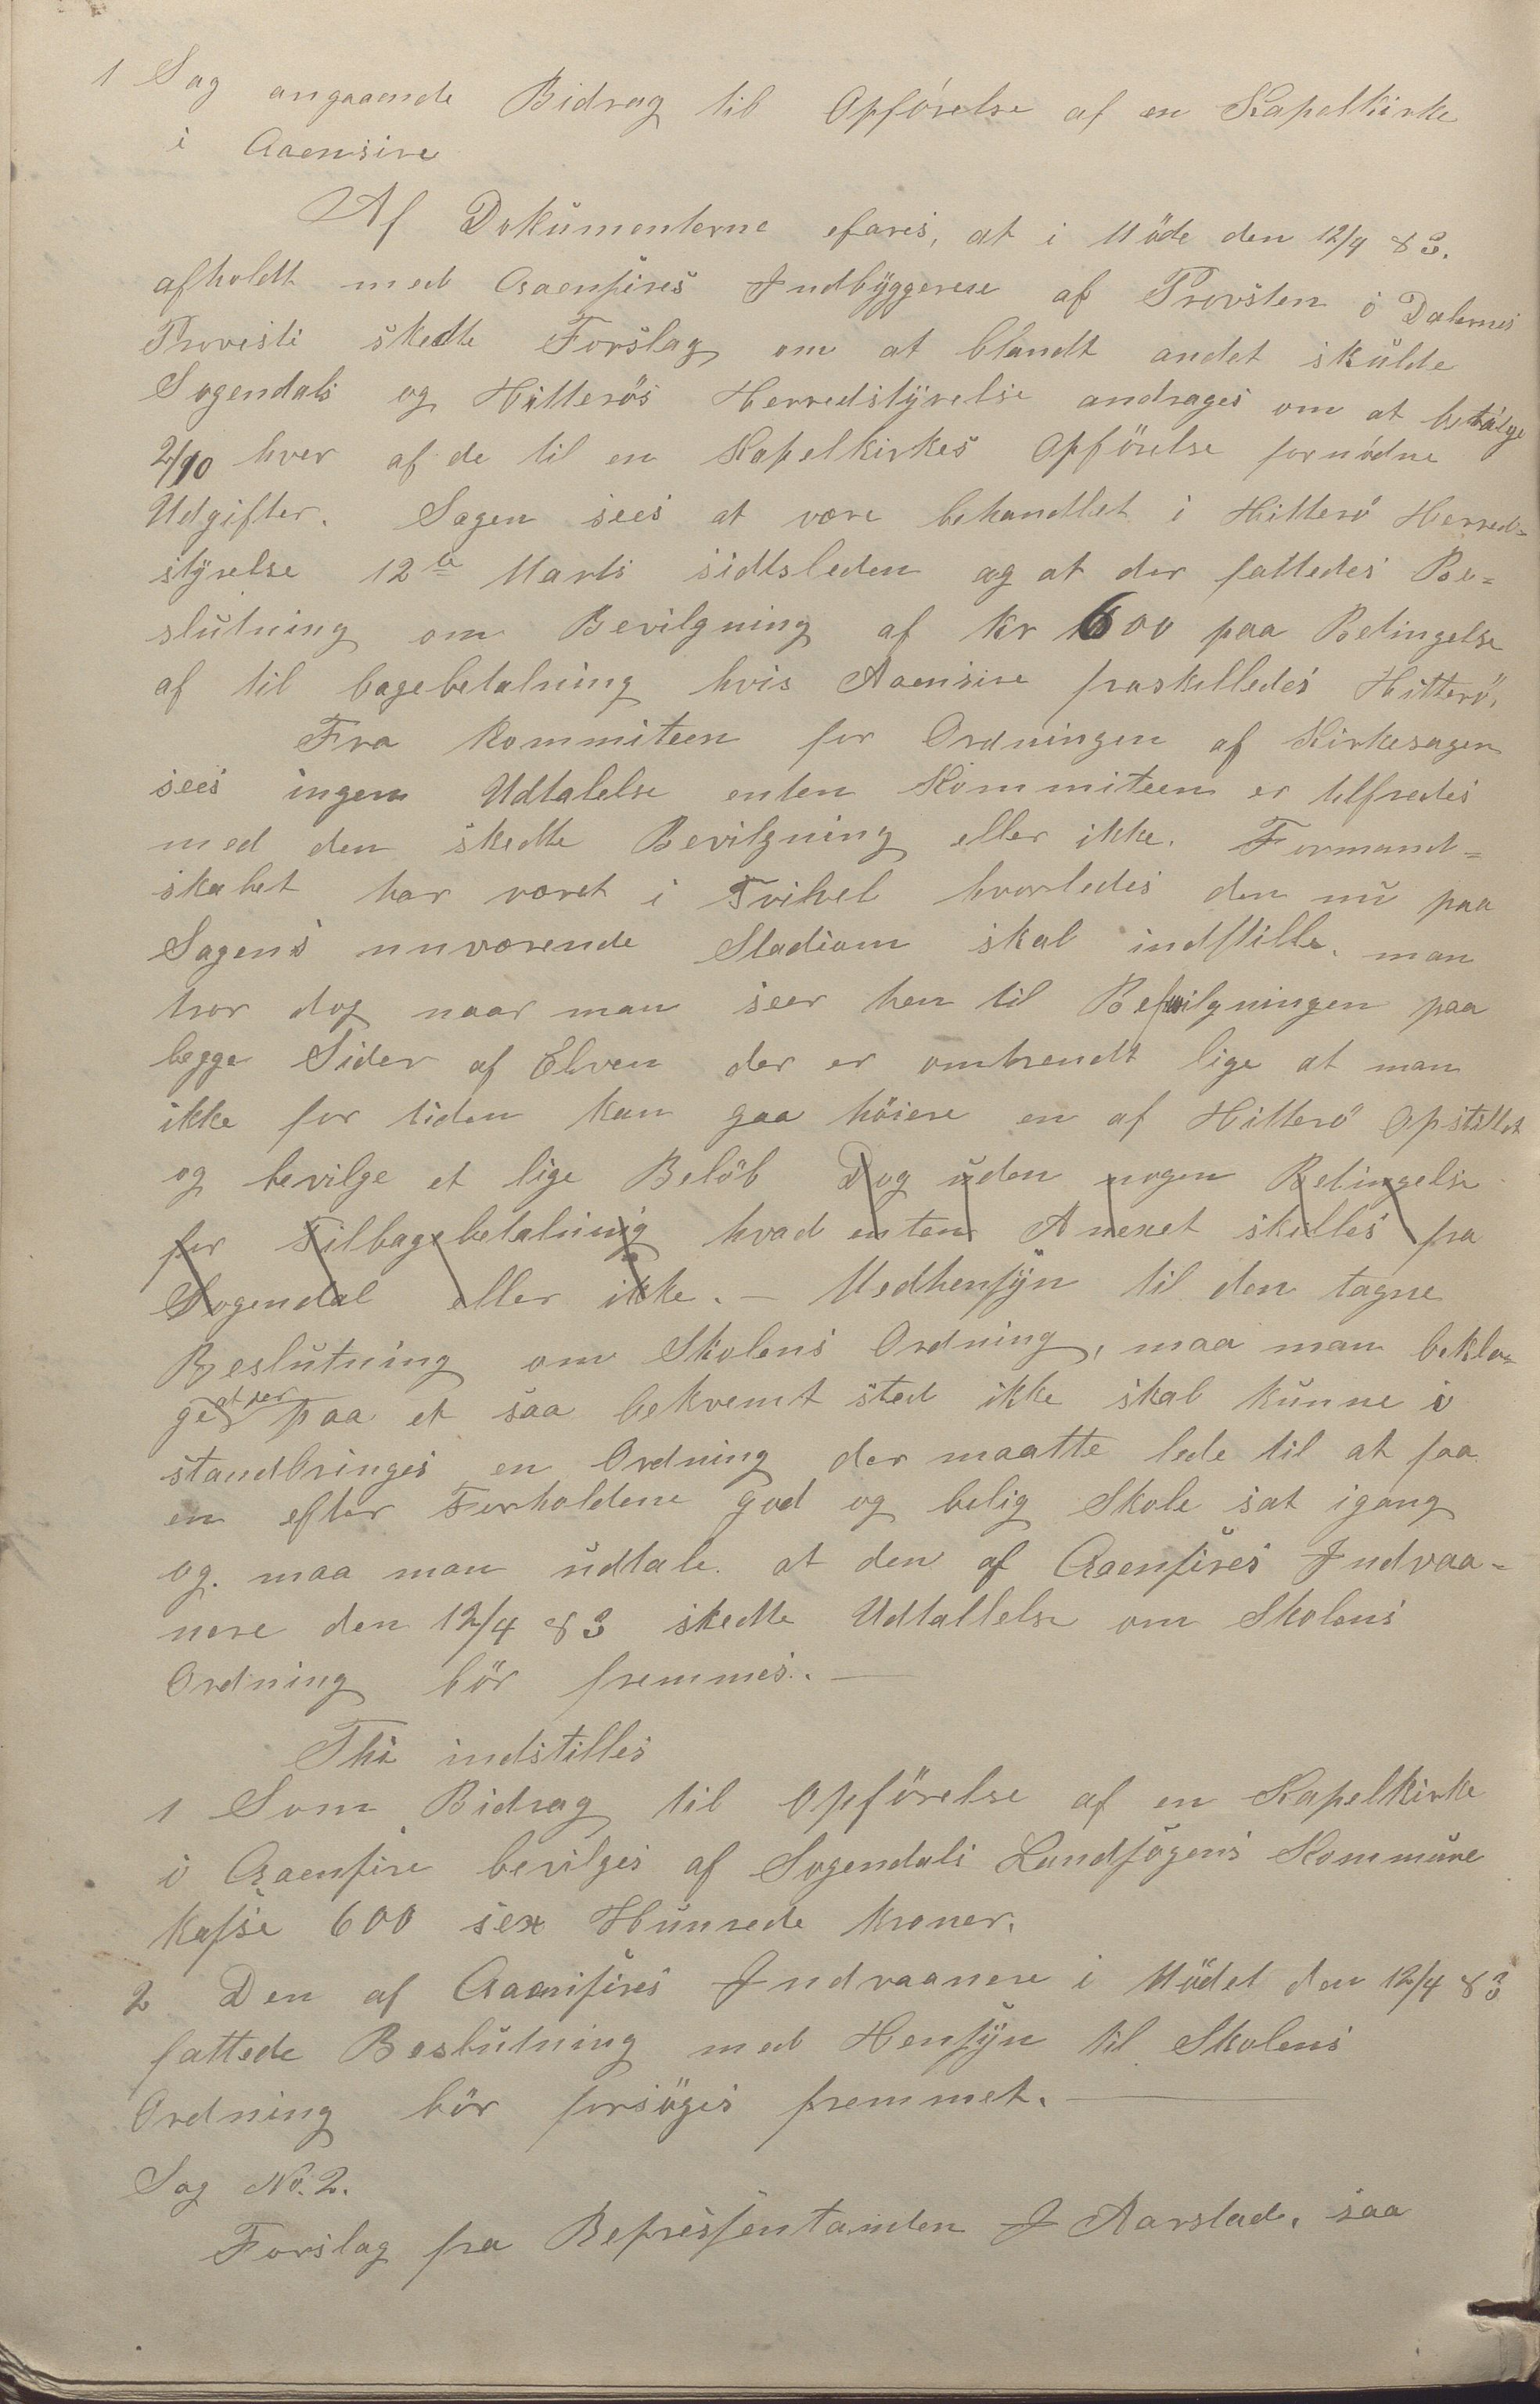 1 Sag angaaende Bidrag til Opförelse af en Kapelkirke
i Aaensire
Af Dokumenterne efares, at i Möde den 12/4 83.
afholdt med Aaensires Indbyggerese af Provsten i Dalernes
Provesti skedte Forslag om at blandt andet skulde
Sogendals og Hitterös Herredstyrelse andrages om at betalge
2/10 hver af de til en Kapelkirkes Opförelse fornödne
Udgifter. Sagen sees at være behandlet i Hitterö Herred=
styrelse 12te Marts sidtsleden og at der fattedes Be=
slutning om Bevilgning af Kr 600 paa Betingelse
af til bagebetalning hvis Aaensire fraskilledes Hitterö,
Fra Kommiteen for Ordningen af Kirkesagen
sees ingen Udtalelse enten Kommiteen er tilfredes
med den skedte Bevilgning eller ikke. Formand=
skabet har været i Tvihel hvorledes den nu paa
Sagens nuværende Stadium skal indstille. man
tror dog naar man seer hen til Befvilgningen paa
begge Sider af Elven der er omtrendt lige at man
ikke for tiden kan gaa höiere en af Hitterö Opstillet
og bevilge et lige Belöb Dog uden nogen Betingelse
for Tilbagebetalning hvad enten Anexet skilles fra
Sogendal eller ikke. — Medhensyn til den tagne
Beslutning om Skolens Ordning, maa man bekla=
ge at der paa et saa bekvemt sted ikke skal kunne i
standbringes en Ordning der maatte lede til at faa
en efter Forholdene god og belig Skole sat igang
og. maa man udtale. at den af Aaensires Indvaa=
nere den 12/4 83 skedte Udtallelse om Skolens
Ordning bör fremmes. —
Thi indstilles
1 Som Bidrag til Opförelse af en Kapelkirke
i Aaensire bevilges af Sogendals Landsogens Kommune
kasse 600 sex Hunrede Kroner.
2 Den af Aaensires Indvaanere i Mödet den 12/4 83
fattede Beslutning med Hensyn til Skolens
Ordning bör forsöges fremmet. —
Sag No. 2.
Forslag fra Repressentanten J Aarstad. saa